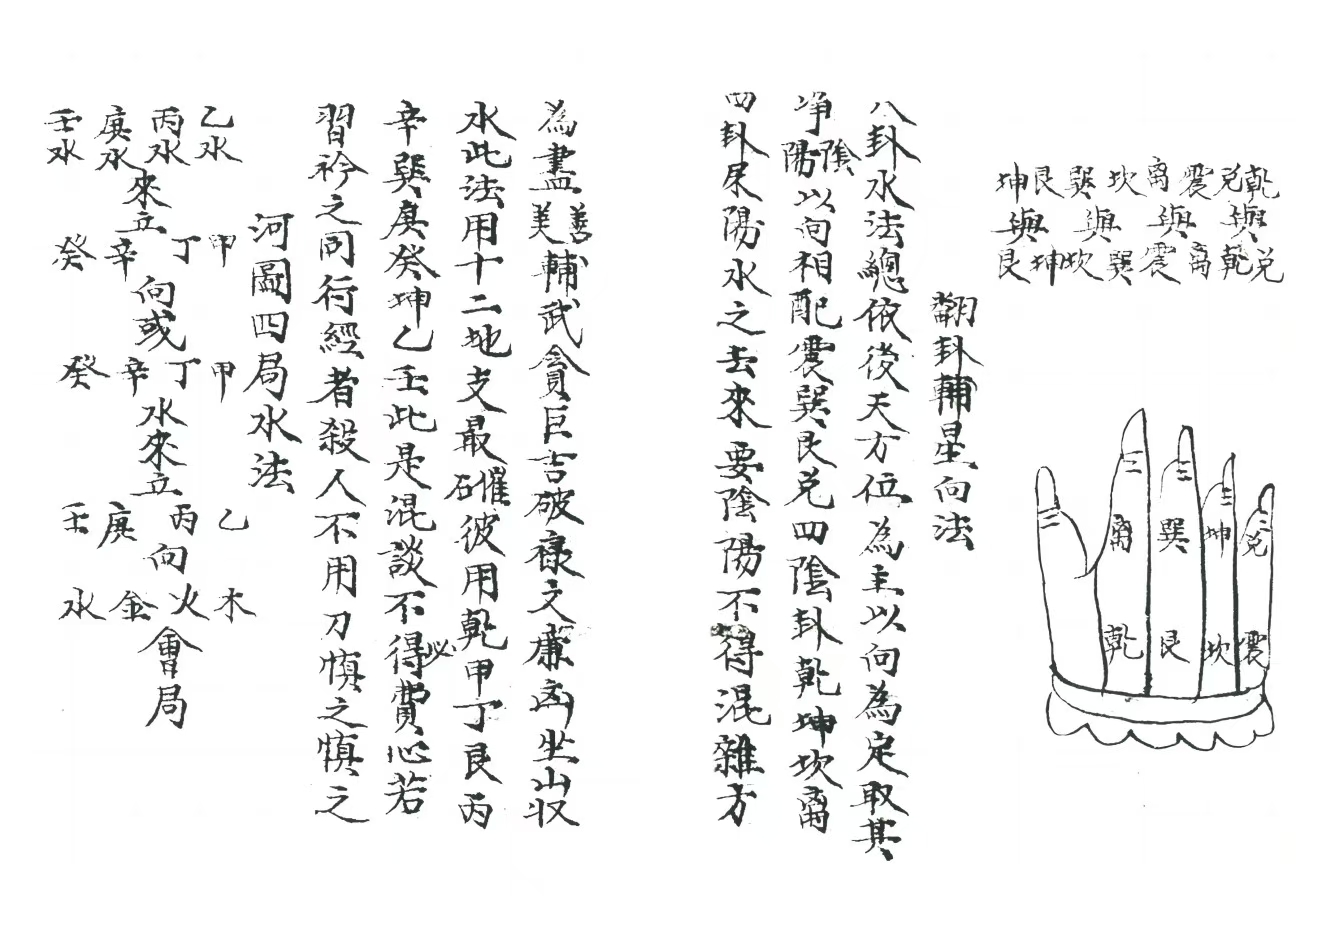 乾兌震离坎巽艮坤
與與與與
兌乾离震巽坎坤艮
兌坤巽离
震坎艮乾
翻卦輔星向法
八卦水法總依後天方位為主以向為定取其
凈陰陽以向相配震巽艮兌四陰卦乾坤坎离
四卦屎陽水之去來要陰陽不得混雜方
為盡善美輔武貪巨吉破祿文廉凶坐山収
水此法用十二地支最確彼用乾甲丁艮丙
辛巽庚癸坤乙壬此是混談不得必費心若
習衿之同行經者殺人不用刀慎之慎之
河圖四局水法
乙水丙水庚水壬水
來立
甲丁辛癸
向或
甲丁辛癸
水來立
乙丙庚壬
向
木火金水
會局